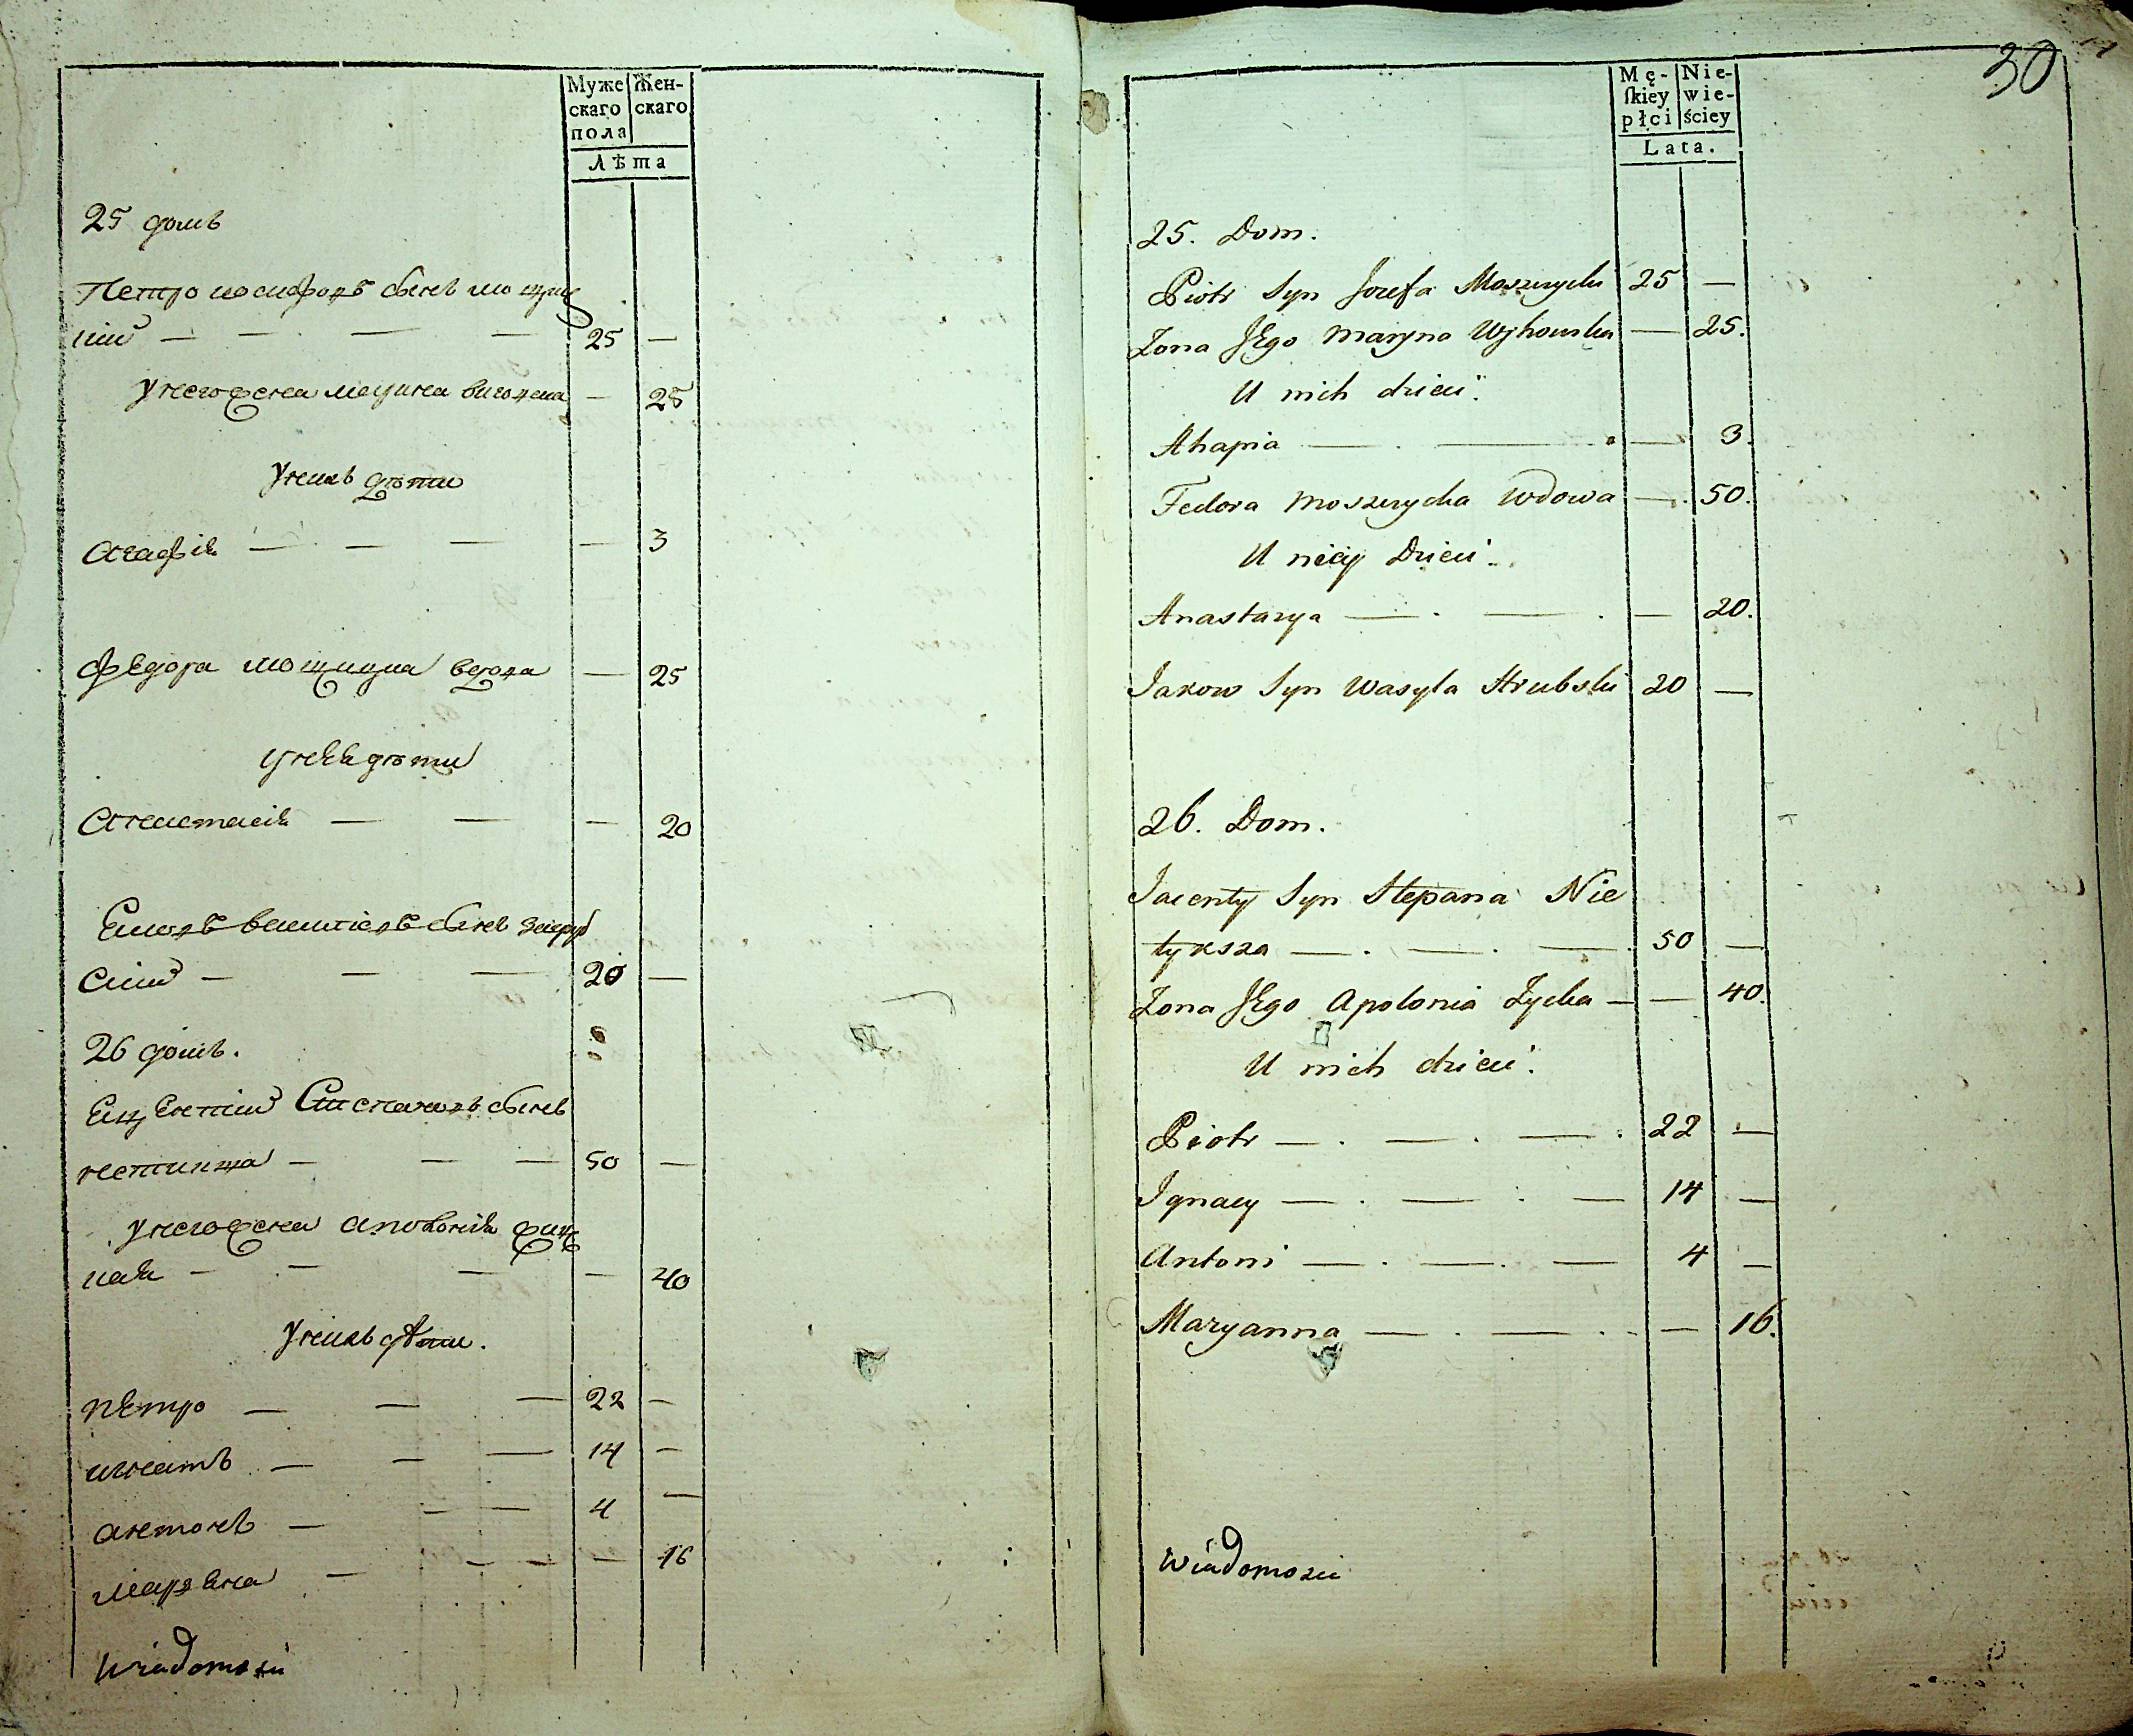 Муже Жен-
скаго скаго
пола
Лѣта
25 домъ
Петро иосифовъ сынъ мощиц
кий — — — — 25 —
у него жена марина виговска — 25
у нихъ дѣти
Агафія — — — — 3
Федора мощицка вдова — 25
у нея дѣти
Анастасія — — — 20
сынъ
ский — — — 20 —
26 домъ.
Степановъ сынъ
— — — 50 —
у него жена Аполонія
кая — — — — 40
у нихъ дѣти.
Петро — — — 22 —
игнатъ — — — 14 —
антонъ — — — 4 —
марянна — — — — 16
Wiadomosci
30
Mę- Nie-
ſkiey wie-
płci ściey
Lata.
25. Dom.
Piotr Syn Jozefa Moszczycki 25 —
Zona JEgo Maryna Wyhowska — 25.
U nich dzieci:
Ahapia — — — 3.
Fedora Moszczycka Wdowa — 50.
U niey Dzieci:
Anastazya — — — 20.
Jakow Syn Wasyla Hrubski 20 —
26. Dom.
Jacenty Syn Stepana Nie
tyksza — — — 50 —
Zona JEgo Apolonia Zycka — — 40.
U nich dzieci:
Piotr — — — 22 —
Ignacy — — — 14 —
Antoni — — — 4 —
Maryanna — — — 16.
Wiadomosci